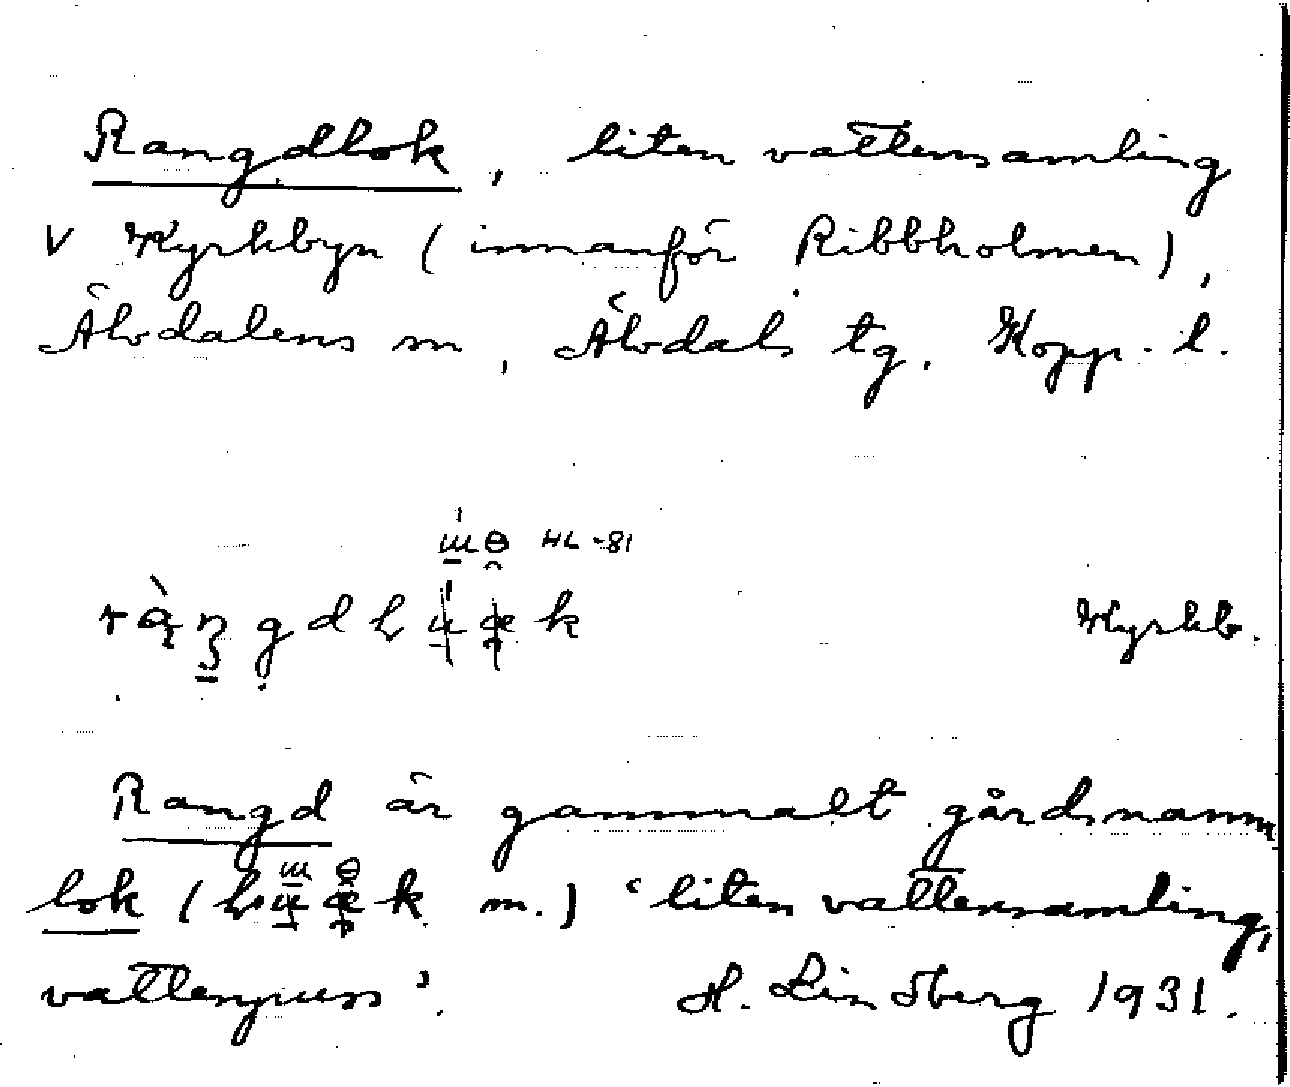 Rangdlok, liten vattensamling
V Kyrkbyn (innanför Ribbholmen),
Älvdalens sn, Älvdals tg. Kopp. l.
HL -81
Kyrkb.
Rangd är gammalt gårdsnamn
lok ( k m.) 'liten vattensamling,
vattenpuss'. H. Lindberg 1931.